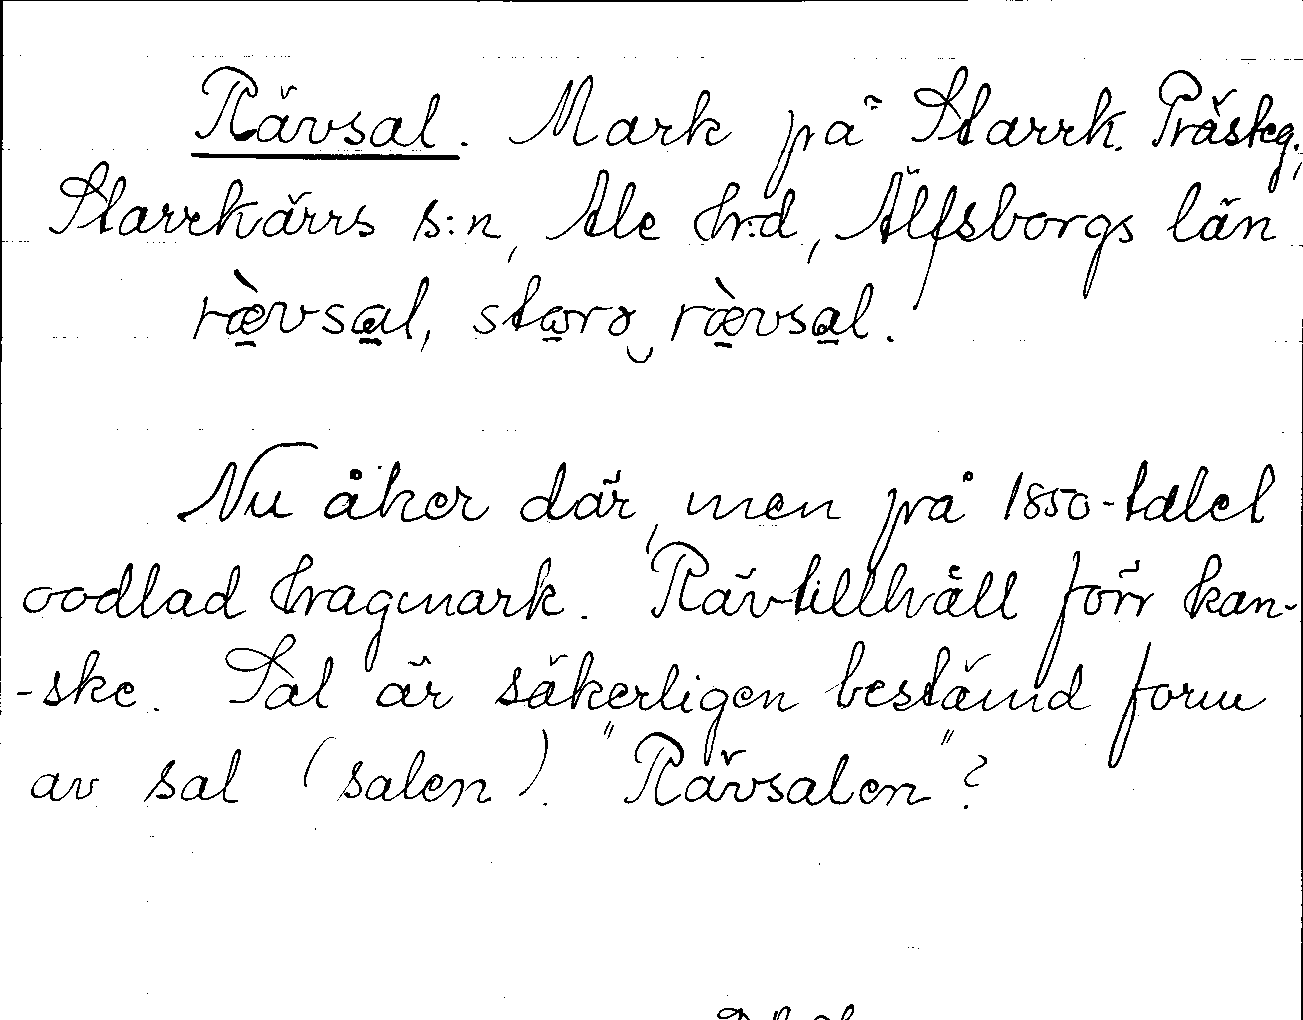 Rävsal. Mark på Starrk. Prästeg.,
Starrkärrs s:n, Ale hrd, Älfsborgs län
rævsal, storə rævsal.
Nu åker där, men på 1850-talet
oodlad hagmark. Rävtillhåll förr kan-
-ske. Sal är säkerligen bestämd form
av sal (salen). "Rävsalen"?